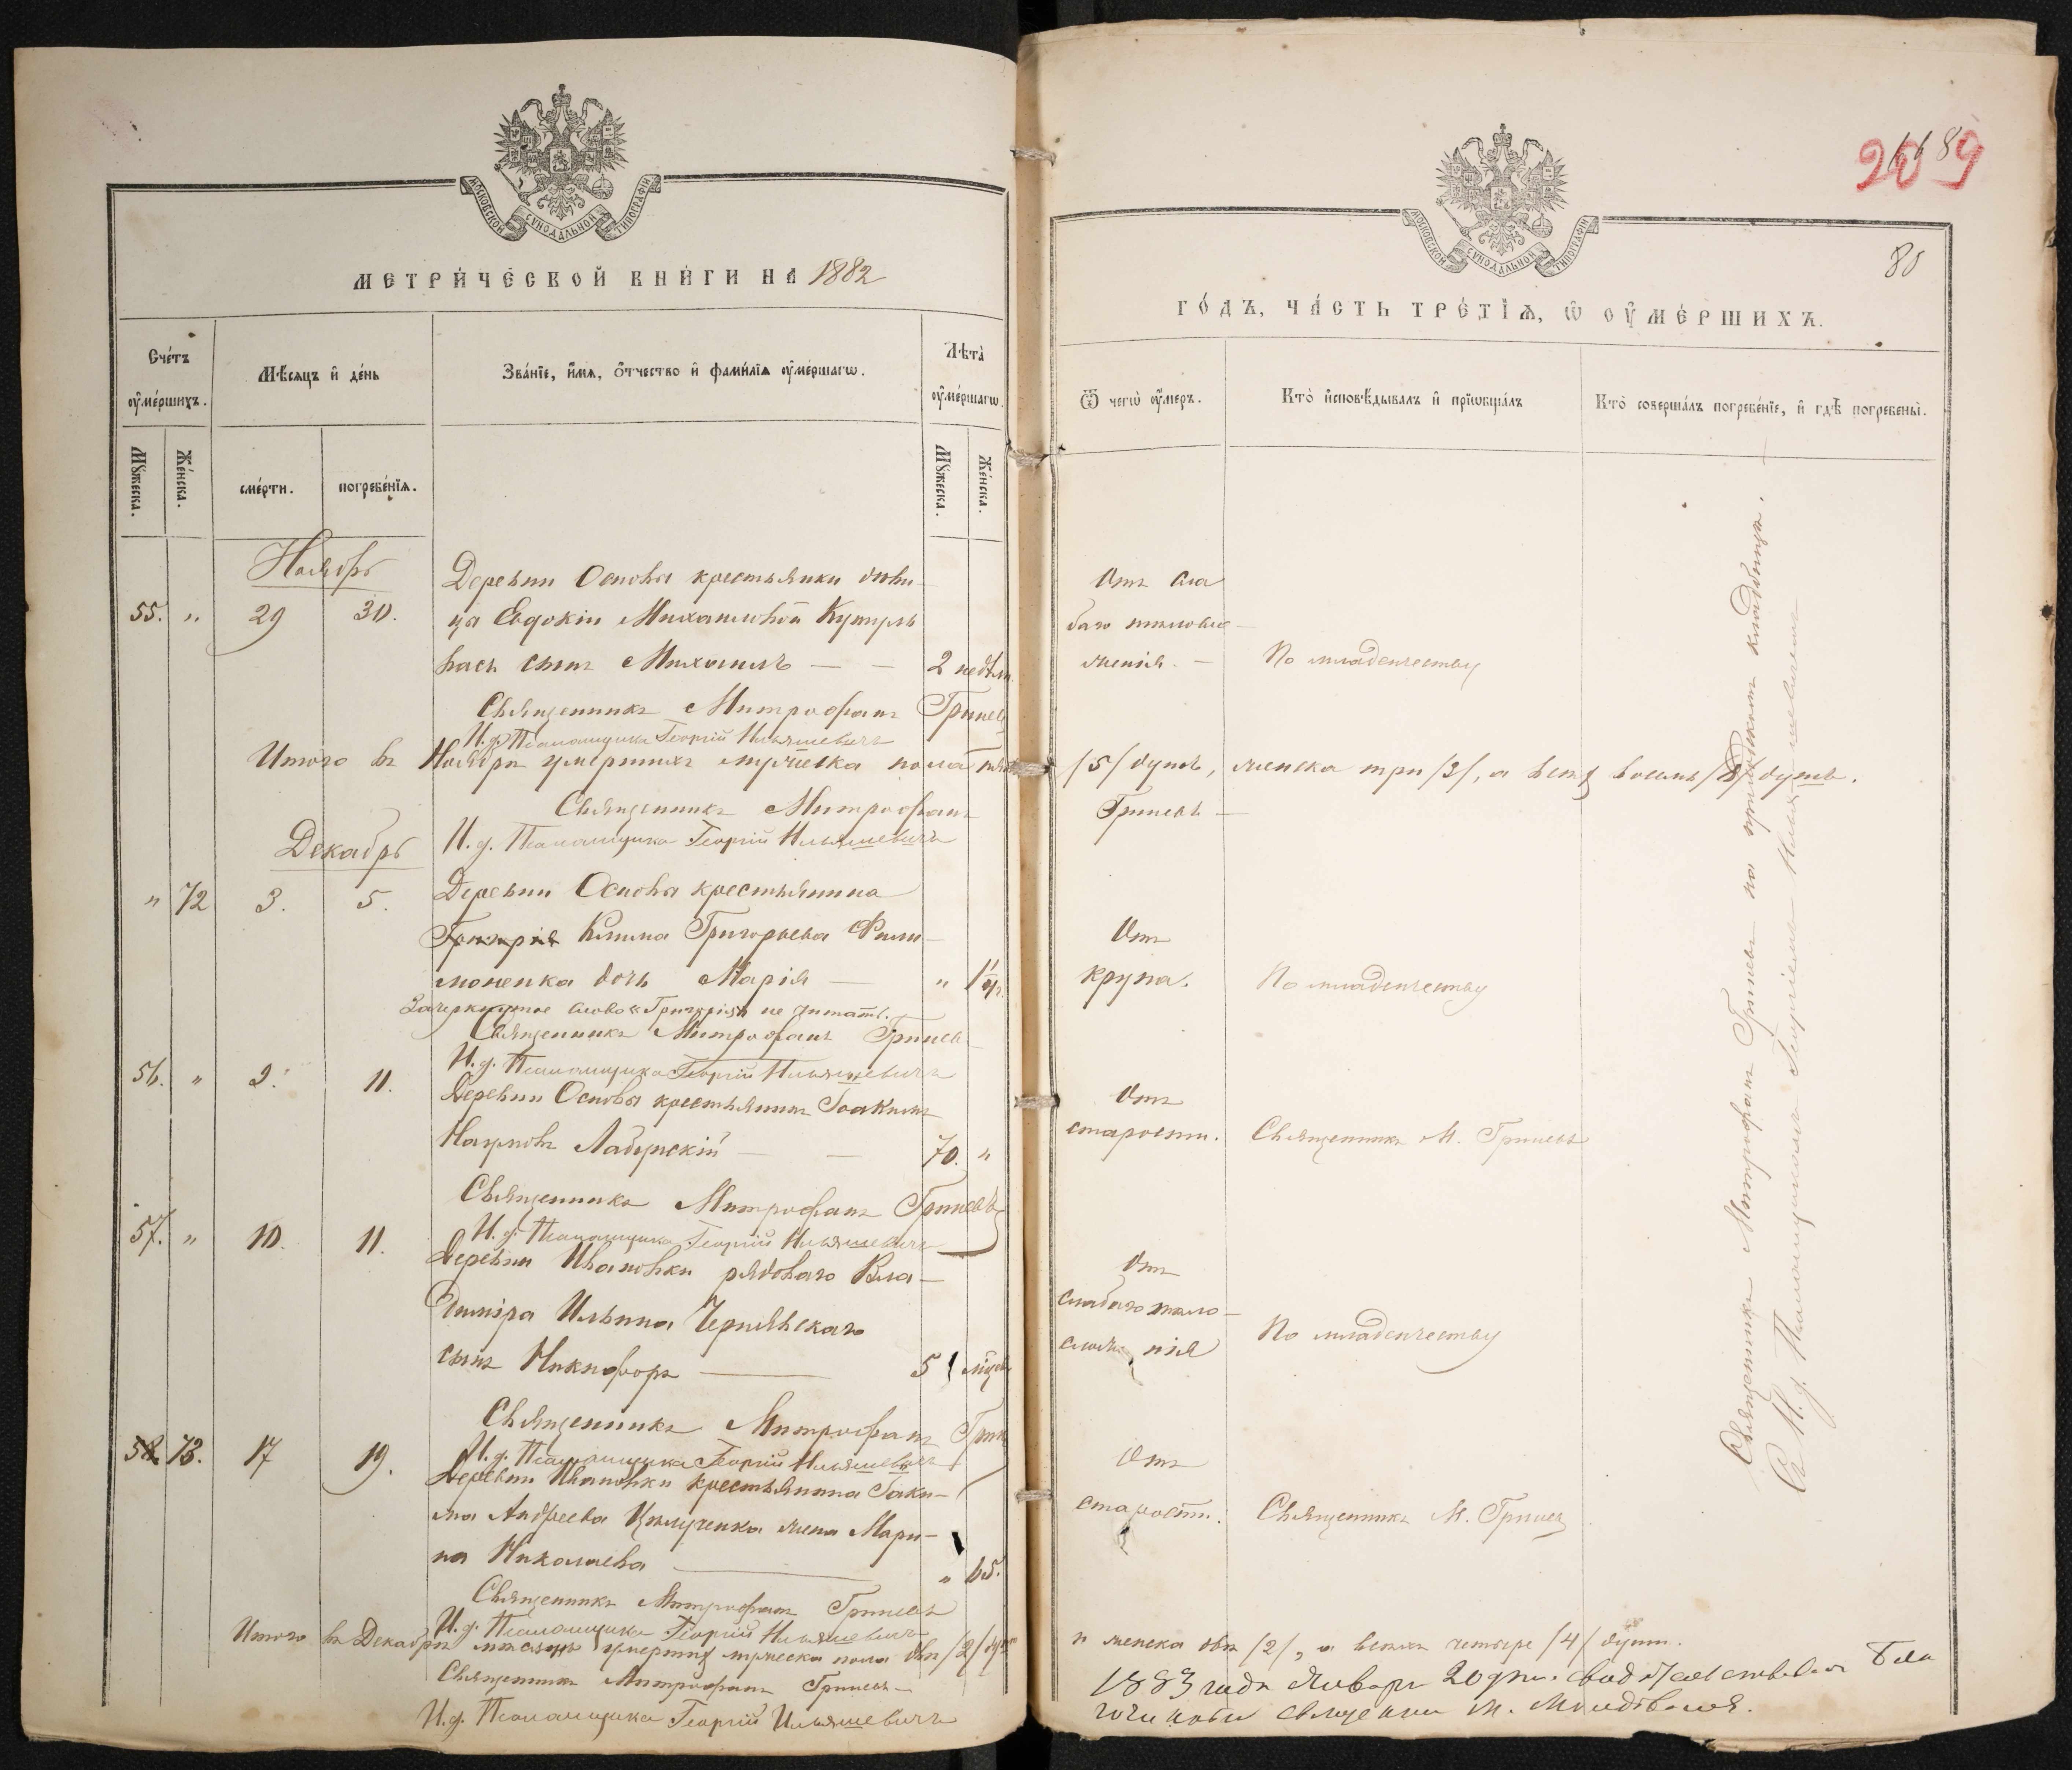 МОСКОВСКОЙ СѴНОДАЛЬНОЙ ТИПОГРАФІИ
МЕТРИ́ЧЕСКОЙ КНИ́ГИ НА 1882
Сче́тъ ᲂу҆ме́ршихъ.
Мѣ́сяцъ и҆ де́нь
Зва́нїе, и҆́мя, ѻ҆́тчество и҆ фами́лїя ᲂу҆ме́ршагѡ.
Лѣта̀ ᲂу҆ме́ршагѡ.
Мꙋ́жеска.
Же́нска.
сме́рти.
погребе́нїя.
Мꙋ́жеска.
Же́нска.
Ноябрь
55. " 29 30.
Деревни Основы крестьянки дѣви-
ца Евдокіи Михаиловой
сынъ Михаилъ — — 2 недѣли
Священникъ Митрофанъ Гриневъ
И. д. Псаломщика Георгій Ильяшевичъ
Итого въ Ноябрѣ умершихъ мужеска пола пять
Священникъ Митрофанъ
И. д. Псаломщика Георгій Ильяшевичъ
Декабрь
" 72 3. 5.
Деревни Основы крестьянина
Григорія Клима Григорьева Фили-
моненка дочь Марія — "
Зачеркнутое слово "Григорія" не читать.
Священникъ Митрофанъ Гриневъ
И. д. Псаломщика Георгій Ильяшевичъ
56. " 9. 11.
Деревни Основы крестьянинъ Іоакимъ
Наумовъ Лабунскій — — 70. "
Священникъ Митрофанъ Гриневъ
И. д. Псаломщика Георгій Ильяшевичъ
57. " 10. 11.
Деревни Ивановки рядоваго Вла-
диміра Ильина Чернявскаго
сынъ Никифоръ — 5 мѣсяц
Священникъ Митрофанъ Грин
И. д. Псаломщика Георгій Ильяшевичъ
58. 73. 17 19.
Деревни Ивановки крестьянина Іаки-
ма Андреева жена Мари-
на Николаева — " 65.
Священникъ Митрофанъ Гриневъ
И. д. Псаломщика Георгій Ильяшевичъ
Итого въ Декабрѣ мѣсяцѣ умершихъ мужеска пола два /2/
Священникъ Митрофанъ Гриневъ
И. д. Псаломщика Георгій Ильяшевичъ
209
80
МОСКОВСКОЙ СѴНОДАЛЬНОЙ ТИПОГРАФІИ
ГО́ДЪ, ЧА́СТЬ ТРЕ́ТЇѦ, Ѡ҆ ОУ҆МЕ́РШИХЪ.
Ѿ чегѡ̀ ᲂу҆́меръ.
Кто̀ и҆сповѣ́дывалъ и҆ прїѡбща́лъ
Кто̀ соверша́лъ погребе́нїе, и҆ гдѣ̀ погребены̀.
Отъ сла
баго тѣлосло-
женія. —
По младенчеству
/5/ душъ, женска три /3/, а всѣхъ восемь /8/ душъ.
Гриневъ —
Отъ
крупа.
По младенчеству
Отъ
старости.
Священникъ М. Гриневъ
Отъ
слабаго тѣло-
сложенія
По младенчеству
Отъ
старости.
Священникъ М. Гриневъ
Священникъ Митрофанъ Гриневъ на приходскомъ кладбищѣ.
Съ И. д. Псаломщикомъ Георгіемъ Ильяшевичемъ
и женска двѣ /2/, а всѣхъ четыре /4/ души.
1883 года Января 20 дня. свидѣтельствовалъ Бла
гочинный священникъ М.